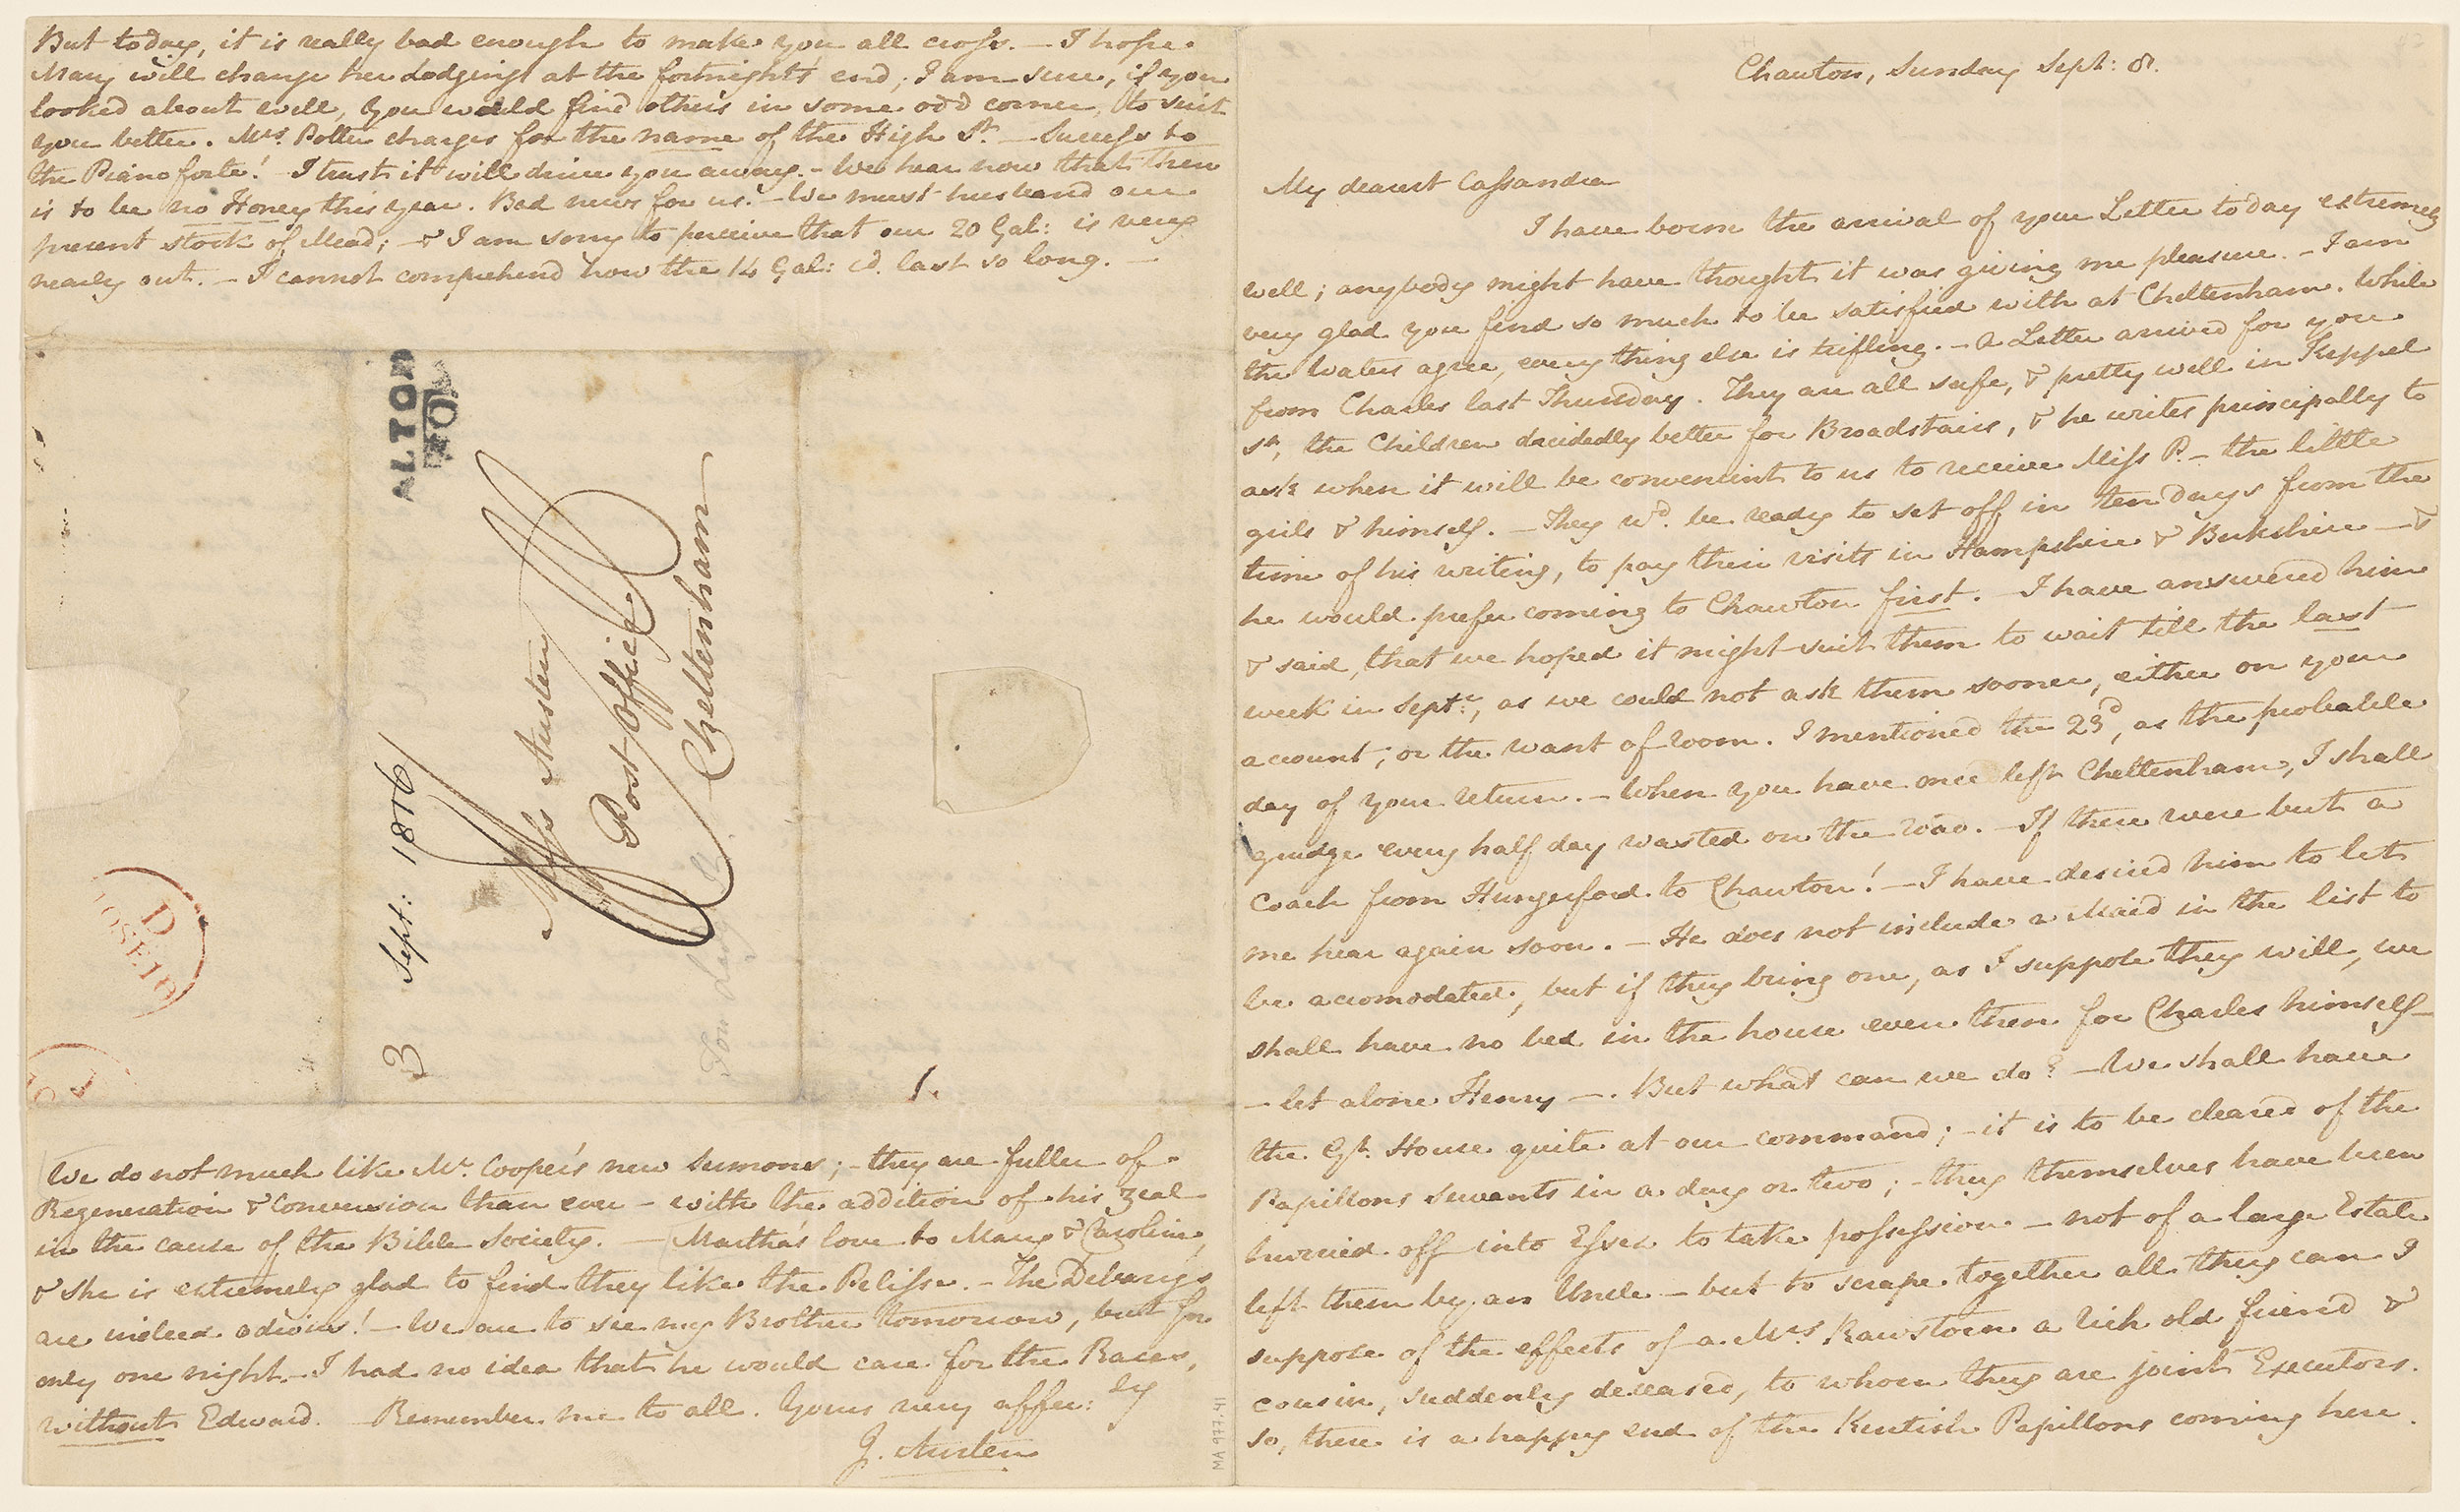 Chawton, Sunday Sept: 8.
My dearest Cassandra
I have borne the arrival of your Letter today extremely
well; anybody might have thought it was giving me pleasure. — I am
very glad you find so much to be satisfied with at Cheltenham. While
the Waters agree, every thing else is trifling. — A Letter arrived for you
from Charles last Thursday. They are all safe, & pretty well in Keppel
St., the Children decidedly better for Broadstairs, & he writes principally to
ask when it will be convenient to us to receive Miss P. — the little
girls & himself. — They wd. be ready to set off in ten days from the
time of his writing, to pay their visits in Hampshire & Berkshire — &
he would prefer coming to Chawton first. — I have answered him
& said, that we hoped it might suit them to wait till the last
week in Septr., as we could not ask them sooner, either on your
account, or the want of room. I mentioned the 23d, as the probable
day of your return. — When you have once left Cheltenham, I shall
grudge every half day wasted on the road. — If there were but a
coach from Hungerford to Chawton! — I have desired him to let
me hear again soon. — He does not include a Maid in the list to
be accomodated, but if they bring one, as I suppose they will, we
shall have no bed in the house even then for Charles himself —
— let alone Henry —. But what can we do? — We shall have
the Gt. House quite at our command; — it is to be cleared of the
Papillons Servants in a day or two; — they themselves have been
hurried off into Essex to take possession — not of a large Estate
left them by an Uncle — but to scrape together all they can I
suppose of the effects of a Mrs Rawstorn a rich old friend &
cousin, suddenly deceased, to whom they are joint Executors.
So, there is a happy end of the Kentish Papillons coming here.
But today, it is really bad enough to make you all cross. — I hope
Mary will change her Lodgings at the fortnight's end; I am sure, if you
looked about well, you would find others in some odd corner, to suit
you better. Mrs. Potter charges for the name of the High St. — Success to
the Piano forte! I trust it will drive you away. — We hear now that there
is to be no Honey this year. Bad news for us. — We must husband our
present stock of Mead; — & I am sorry to perceive that our 20 Gal: is very
nearly out. — I cannot comprehend how the 14 Gal: cd. last so long. —
ALTON
Miss Austen
Post Office
Cheltenham
Sept: 1816
3
D
10 SE 10
1.
We do not much like Mr. Cooper's new Sermons; — they are fuller of
Regeneration & Conversion than ever — with the addition of his zeal
in the cause of the Bible Society. — Martha's love to Mary & Caroline,
& she is extremely glad to find they like the Pelisse. — The Debarys
are indeed odious! — We are to see my Brother tomorrow, but for
only one night. — I had no idea that he would care for the Races,
without Edward. — Remember me to all. Yours very affec:ly
J. Austen
MA 977.41